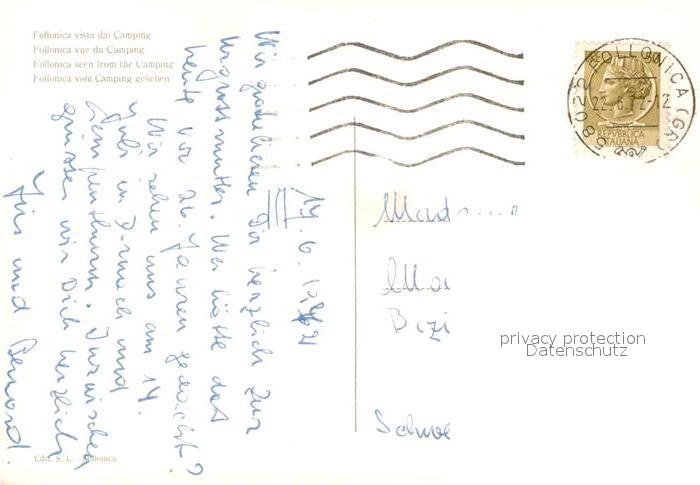 Follonica vista dai Camping
Follonica vue du Camping
Follonica seen from the Camping
Follonica vom Camping gesehen
58022 FOLLONICA (GR)
22.6.72-12
REPVBBLICA
ITALIANA
19. 6. 1972
Wir gratulieren Dir herzlich zur
Urgrossmutter. Wer hätte das
heute vor 26 Jahren gedacht?
Wir sehen uns am 14.
Juli in D-moch und
dem Inzwischen
grüssen wir Dich herzlich
Iris und Bernard.
Mad
Ma
Bizi
Schwe
privacy protection
Datenschutz
Edit. S. L. - Follonica